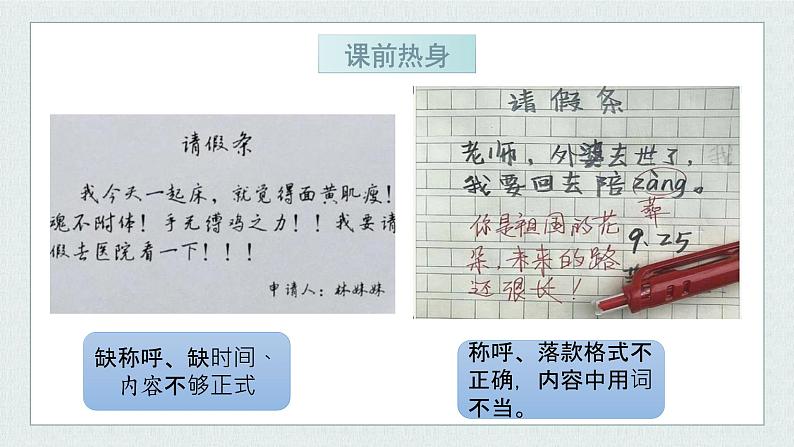 课前热身
请假条
我今天一起床，就觉得面黄肌瘦！
魂不附体！手无缚鸡之力！！我要请
假去医院看一下！！！
申请人：林妹妹
请假条
老师，外婆去世了，我
我要回去陪zàng。
葬
你是祖国的花
朵，未来的路
还很长！
9.25
缺称呼、缺时间、
内容不够正式
称呼、落款格式不
正确，内容中用词
不当。